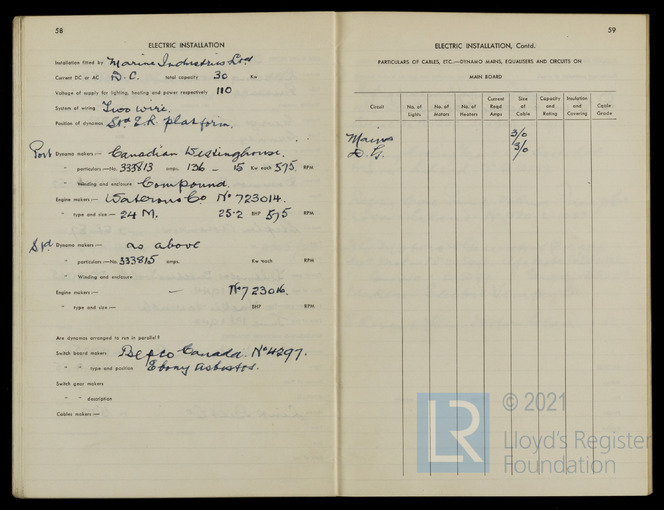 58
ELECTRIC INSTALLATION
Installation fitted by Marine Industries Ltd
Current DC or AC D.C. total capacity 30 Kw
Voltage of supply for lighting, heating and power respectively 110
System of wiring Two wire.
Position of dynamos Std E.R. platform.
Port Dynamo makers— Canadian Westinghouse.
" particulars—No. 333813 amps. 136 – 15 Kw each 575 RPM
" Winding and enclosure Compound.
Engine makers— Waterous Co No 723014.
" type and size— 24 M. 25.2 BHP 575 RPM
Std. Dynamo makers— as above
" particulars—No. 333815 amps. Kw each RPM
" Winding and enclosure
Engine makers:— — No 723016.
" type and size— BHP RPM
Are dynamos arranged to run in parallel?
Switch board makers Bepco Canada. No 4297.
" " type and position Ebony Asbestos.
Switch gear makers
" " description
Cables makers—
59
ELECTRIC INSTALLATION, Contd.
PARTICULARS OF CABLES, ETC.—DYNAMO MAINS, EQUALISERS AND CIRCUITS ON
MAIN BOARD
Circuit No. of Lights No. of Motors No. of Heaters Current Reqd Amps Size of Cable Capacity and Rating Insulation and Covering Cable Grade
Mains 3/0
D.G. 3/0
© 2021
LR
Lloyd's Register
Foundation